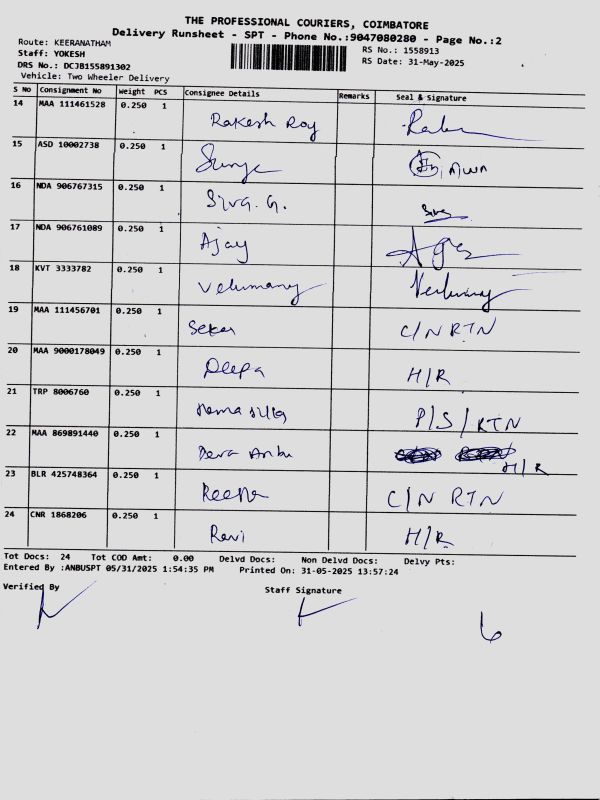 THE PROFESSIONAL COURIERS, COIMBATORE
Delivery Runsheet - SPT - Phone No.:9047080280 - Page No.:2
Route: KEERANATHAM
Staff: YOKESH
DRS No.: DCJB155891302
Vehicle: Two Wheeler Delivery
RS No.: 1558913
RS Date: 31-May-2025
S No Consignment No Weight PCS Consignee Details Remarks Seal & Signature
14 MAA 111461528 0.250 1 Rakesh Roy
15 ASD 10002738 0.250 1
16 NDA 906767315 0.250 1 Siva. G. Siva
17 NDA 906761089 0.250 1 Ajay
18 KVT 3333782 0.250 1 Velumany
19 MAA 111456701 0.250 1 Sekar C/N RTN
20 MAA 9000178049 0.250 1 Deepa H/R
21 TRP 8006760 0.250 1 P/S/RTN
22 MAA 869891440 0.250 1 Deva Anbu H/R
23 BLR 425748364 0.250 1 C/N RTN
24 CNR 1868206 0.250 1 Ravi H/R
Tot Docs: 24 Tot COD Amt: 0.00 Delvd Docs: Non Delvd Docs: Delvy Pts:
Entered By :ANBUSPT 05/31/2025 1:54:35 PM Printed On: 31-05-2025 13:57:24
Verified By Staff Signature
6